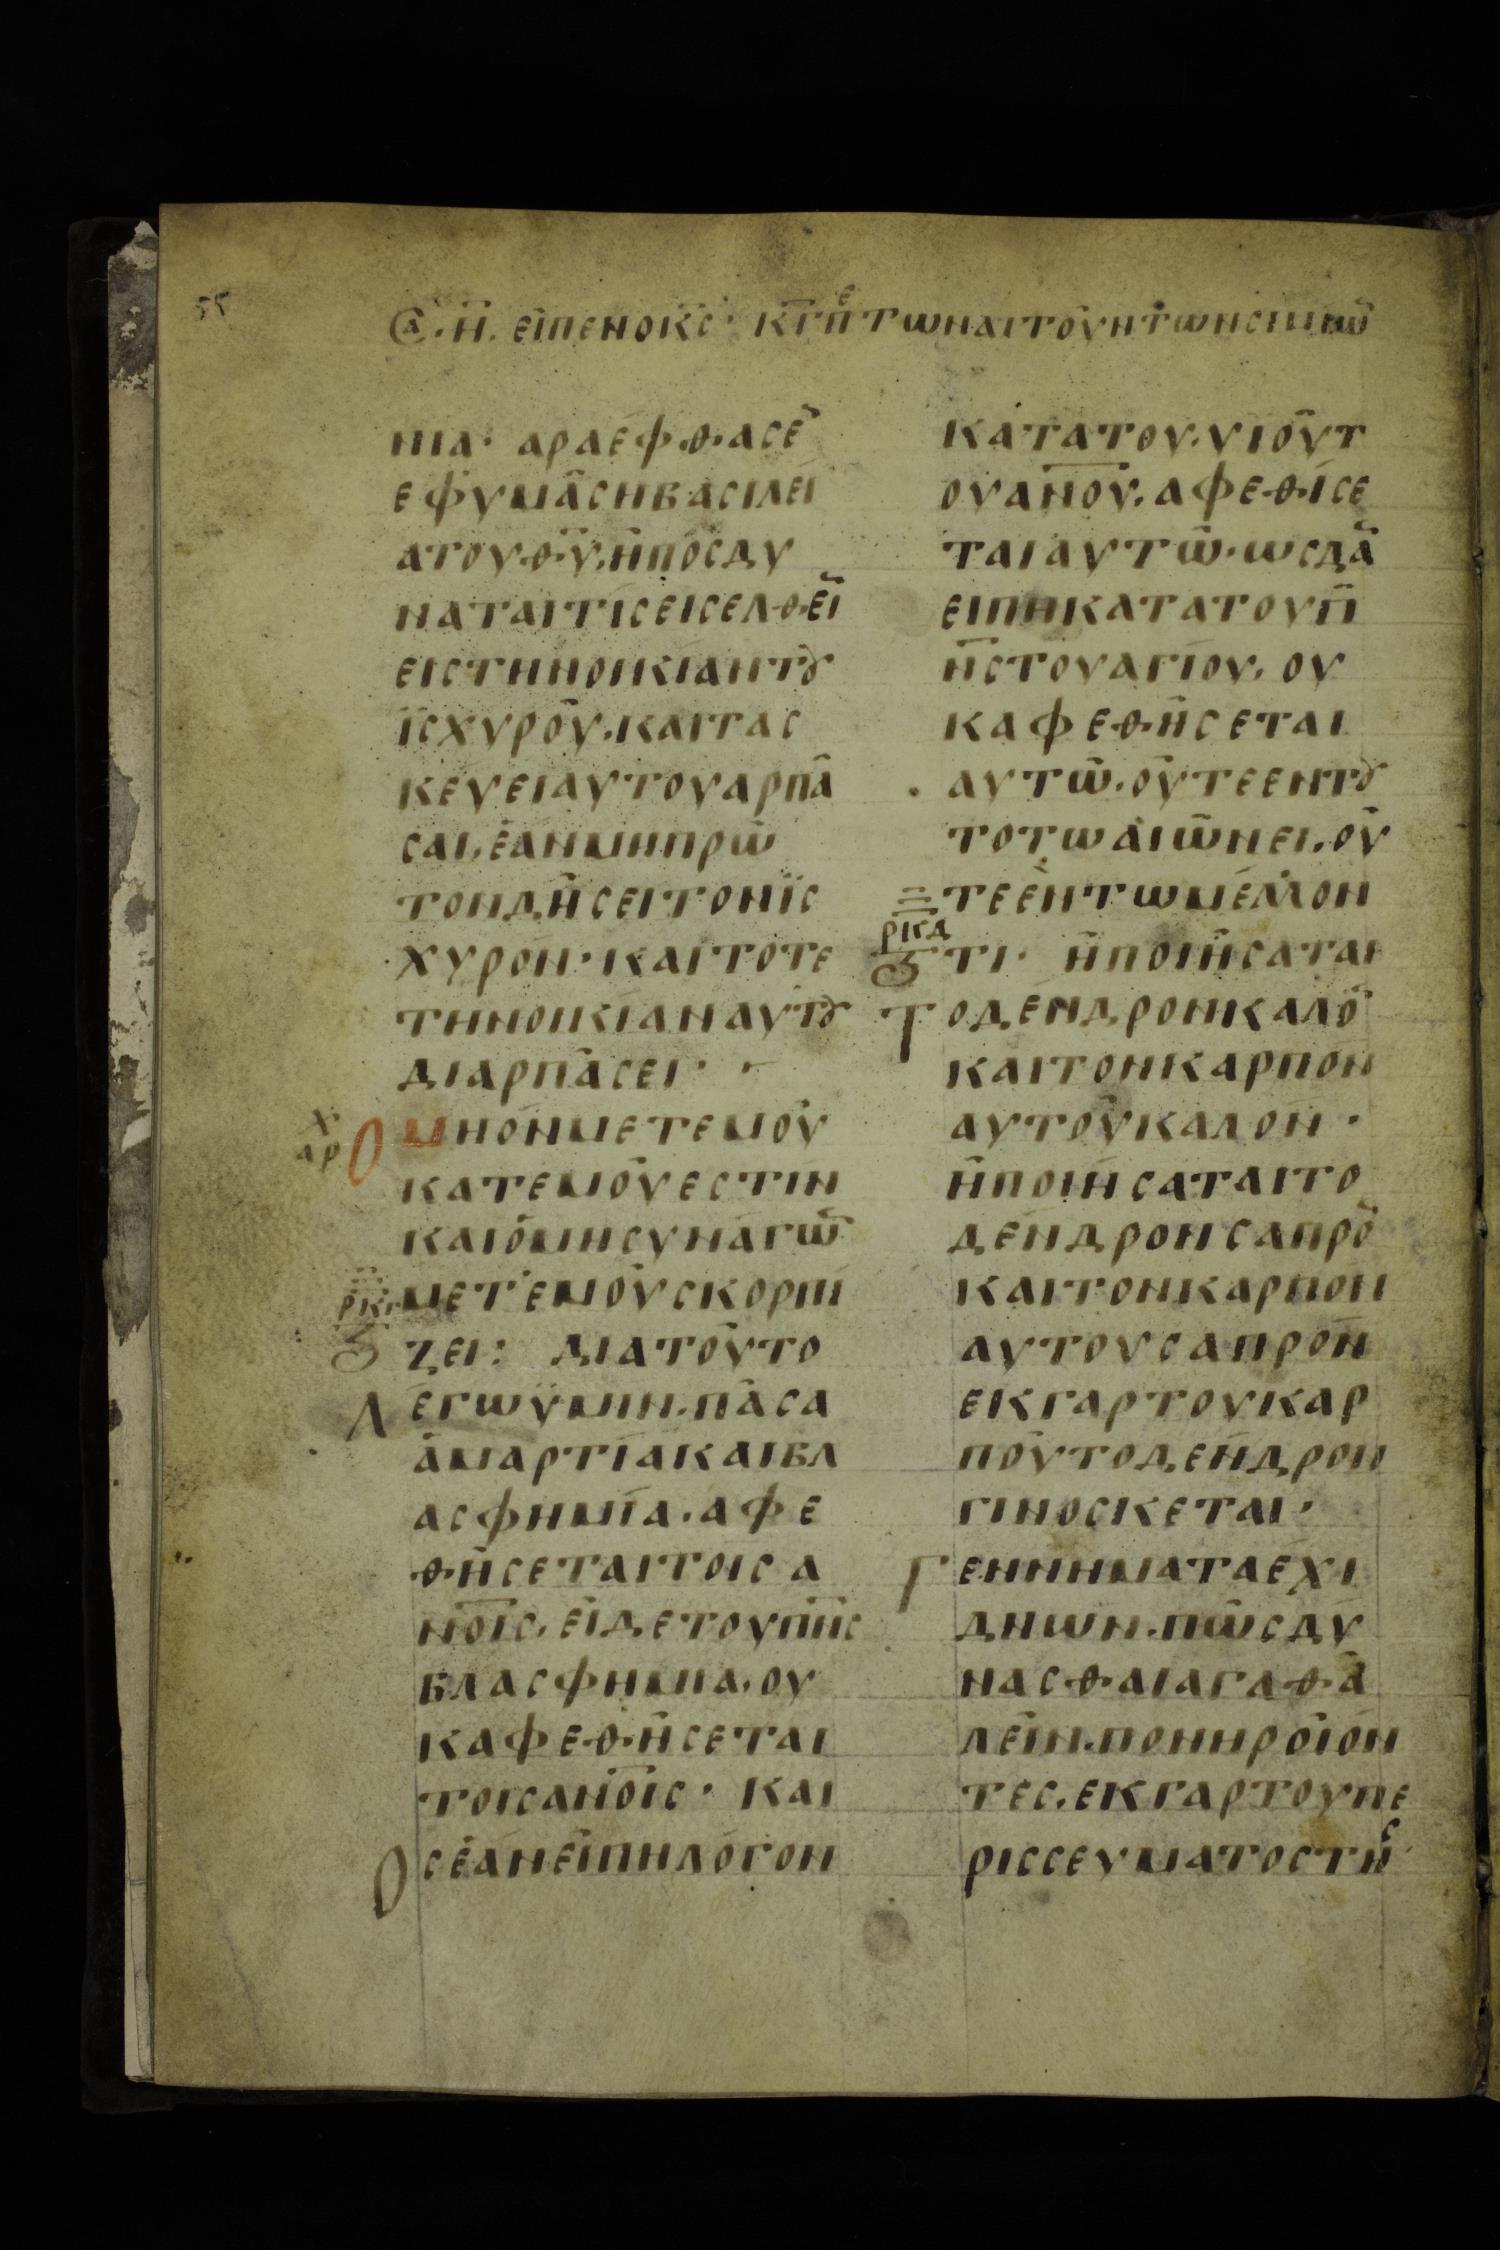 55
Η. ΕΙΠΕΝ Ο Κ̅Σ̅· ΚΓ ΠΕ ΤΩΝ ΑΙΤΟΥΝΤΩΝ ΣΗΜΙΩ̅
ΝΙΑ· ΑΡΑ ΕΦΘΑΣΕ̅
ΕΦ ΥΜΑΣ Η ΒΑΣΙΛΕΙ
Α ΤΟΥ Θ̅Υ̅. Η ΠΟΣ ΔΥ
ΝΑΤΑΙ ΤΙΣ ΕΙΣΕΛΘΕΙ̅
ΕΙΣ ΤΗΝ ΟΙΚΙΑΝ ΤȢ
ΪΣΧΥΡΟΥ. ΚΑΙ ΤΑ Σ
ΚΕΥΕΙ ΑΥΤΟΥ ΑΡΠΑ
ΣΑΙ. ΕΑΝ ΜΗ ΠΡΩ
ΤΟΝ ΔΗΣΕΙ ΤΟΝ ΪΣ
ΧΥΡΟΝ· ΚΑΙ ΤΟΤΕ
ΤΗΝ ΟΙΚΙΑΝ ΑΥΤȢ
ΔΙΑΡΠΑΣΕΙ·
Ο ΜΗ ΟΝ ΜΕΤ ΕΜΟΥ
ΚΑΤ ΕΜΟΥ ΕΣΤΙΝ
ΚΑΙ Ο ΜΗ ΣΥΝΑΓΩ̅
ΜΕΤ ΕΜΟΥ ΣΚΟΡΠΙ
ΡΚΓ
ΖΕΙ: ΔΙΑ ΤΟΥΤΟ
ΛΕΓΩ ΫΜΙΝ. ΠΑΣΑ
ΑΜΑΡΤΙΑ ΚΑΙ ΒΛ
ΑΣΦΗΜΙΑ. ΑΦΕ
ΘΗΣΕΤΑΙ ΤΟΙΣ Α
Ν̅ΟΙΣ. ΕΙ ΔΕ ΤΟΥ Π̅Ν̅Σ̅
ΒΛΑΣΦΗΜΙΑ. ΟΥ
Κ ΑΦΕΘΗΣΕΤΑΙ
ΤΟΙΣ ΑΝ̅ΟΙΣ· ΚΑΙ
ΟΣ ΕΑΝ ΕΙΠΗ ΛΟΓΟΝ
ΚΑΤΑ ΤΟΥ. ΥΙΟΥ Τ
ΟΥ ΑΝ̅ΟΥ. ΑΦΕΘΙΣΕ
ΤΑΙ ΑΥΤΩ· ΩΣ Δ ΑΝ
ΕΙΠΗ ΚΑΤΑ ΤΟΥ Π̅
Ν̅Σ̅ ΤΟΥ ΑΓΙΟΥ. ΟΥ
Κ ΑΦΕΘΗΣΕΤΑΙ
ΑΥΤΩ. ΟΥΤΕ ΕΝ ΤȢ
ΤΟ ΤΩ ΑΙΩΝΕΙ. ΟΥ
ΤΕ ΕΝ ΤΩ ΜΕΛΛΟΝ
ΡΚΔ
ΤΙ· Η ΠΟΙΗΣΑΤΑΙ
ΤΟ ΔΕΝΔΡΟΝ ΚΑΛΟ̅
ΚΑΙ ΤΟΝ ΚΑΡΠΟΝ
ΑΥΤΟΥ ΚΑΛΟΝ·
Η ΠΟΙΗΣΑΤΑΙ ΤΟ
ΔΕΝΔΡΟΝ ΣΑΠΡΟ̅
ΚΑΙ ΤΟΝ ΚΑΡΠΟΝ
ΑΥΤΟΥ ΣΑΠΡΟΝ
ΕΚ ΓΑΡ ΤΟΥ ΚΑΡ
ΠΟΥ ΤΟ ΔΕΝΔΡΟΝ
ΓΙΝΟΣΚΕΤΑΙ·
ΓΕΝΝΗΜΑΤΑ ΕΧΙ
ΔΝΩΝ. ΠΩΣ ΔΥ
ΝΑΣΘΑΙ ΑΓΑΘΑ
ΛΕΙΝ. ΠΟΝΗΡΟΙ ΟΝ
ΤΕΣ. ΕΚ ΓΑΡ ΤΟΥ ΠΕ
ΡΙΣΣΕΥΜΑΤΟΣ ΤΗΣ